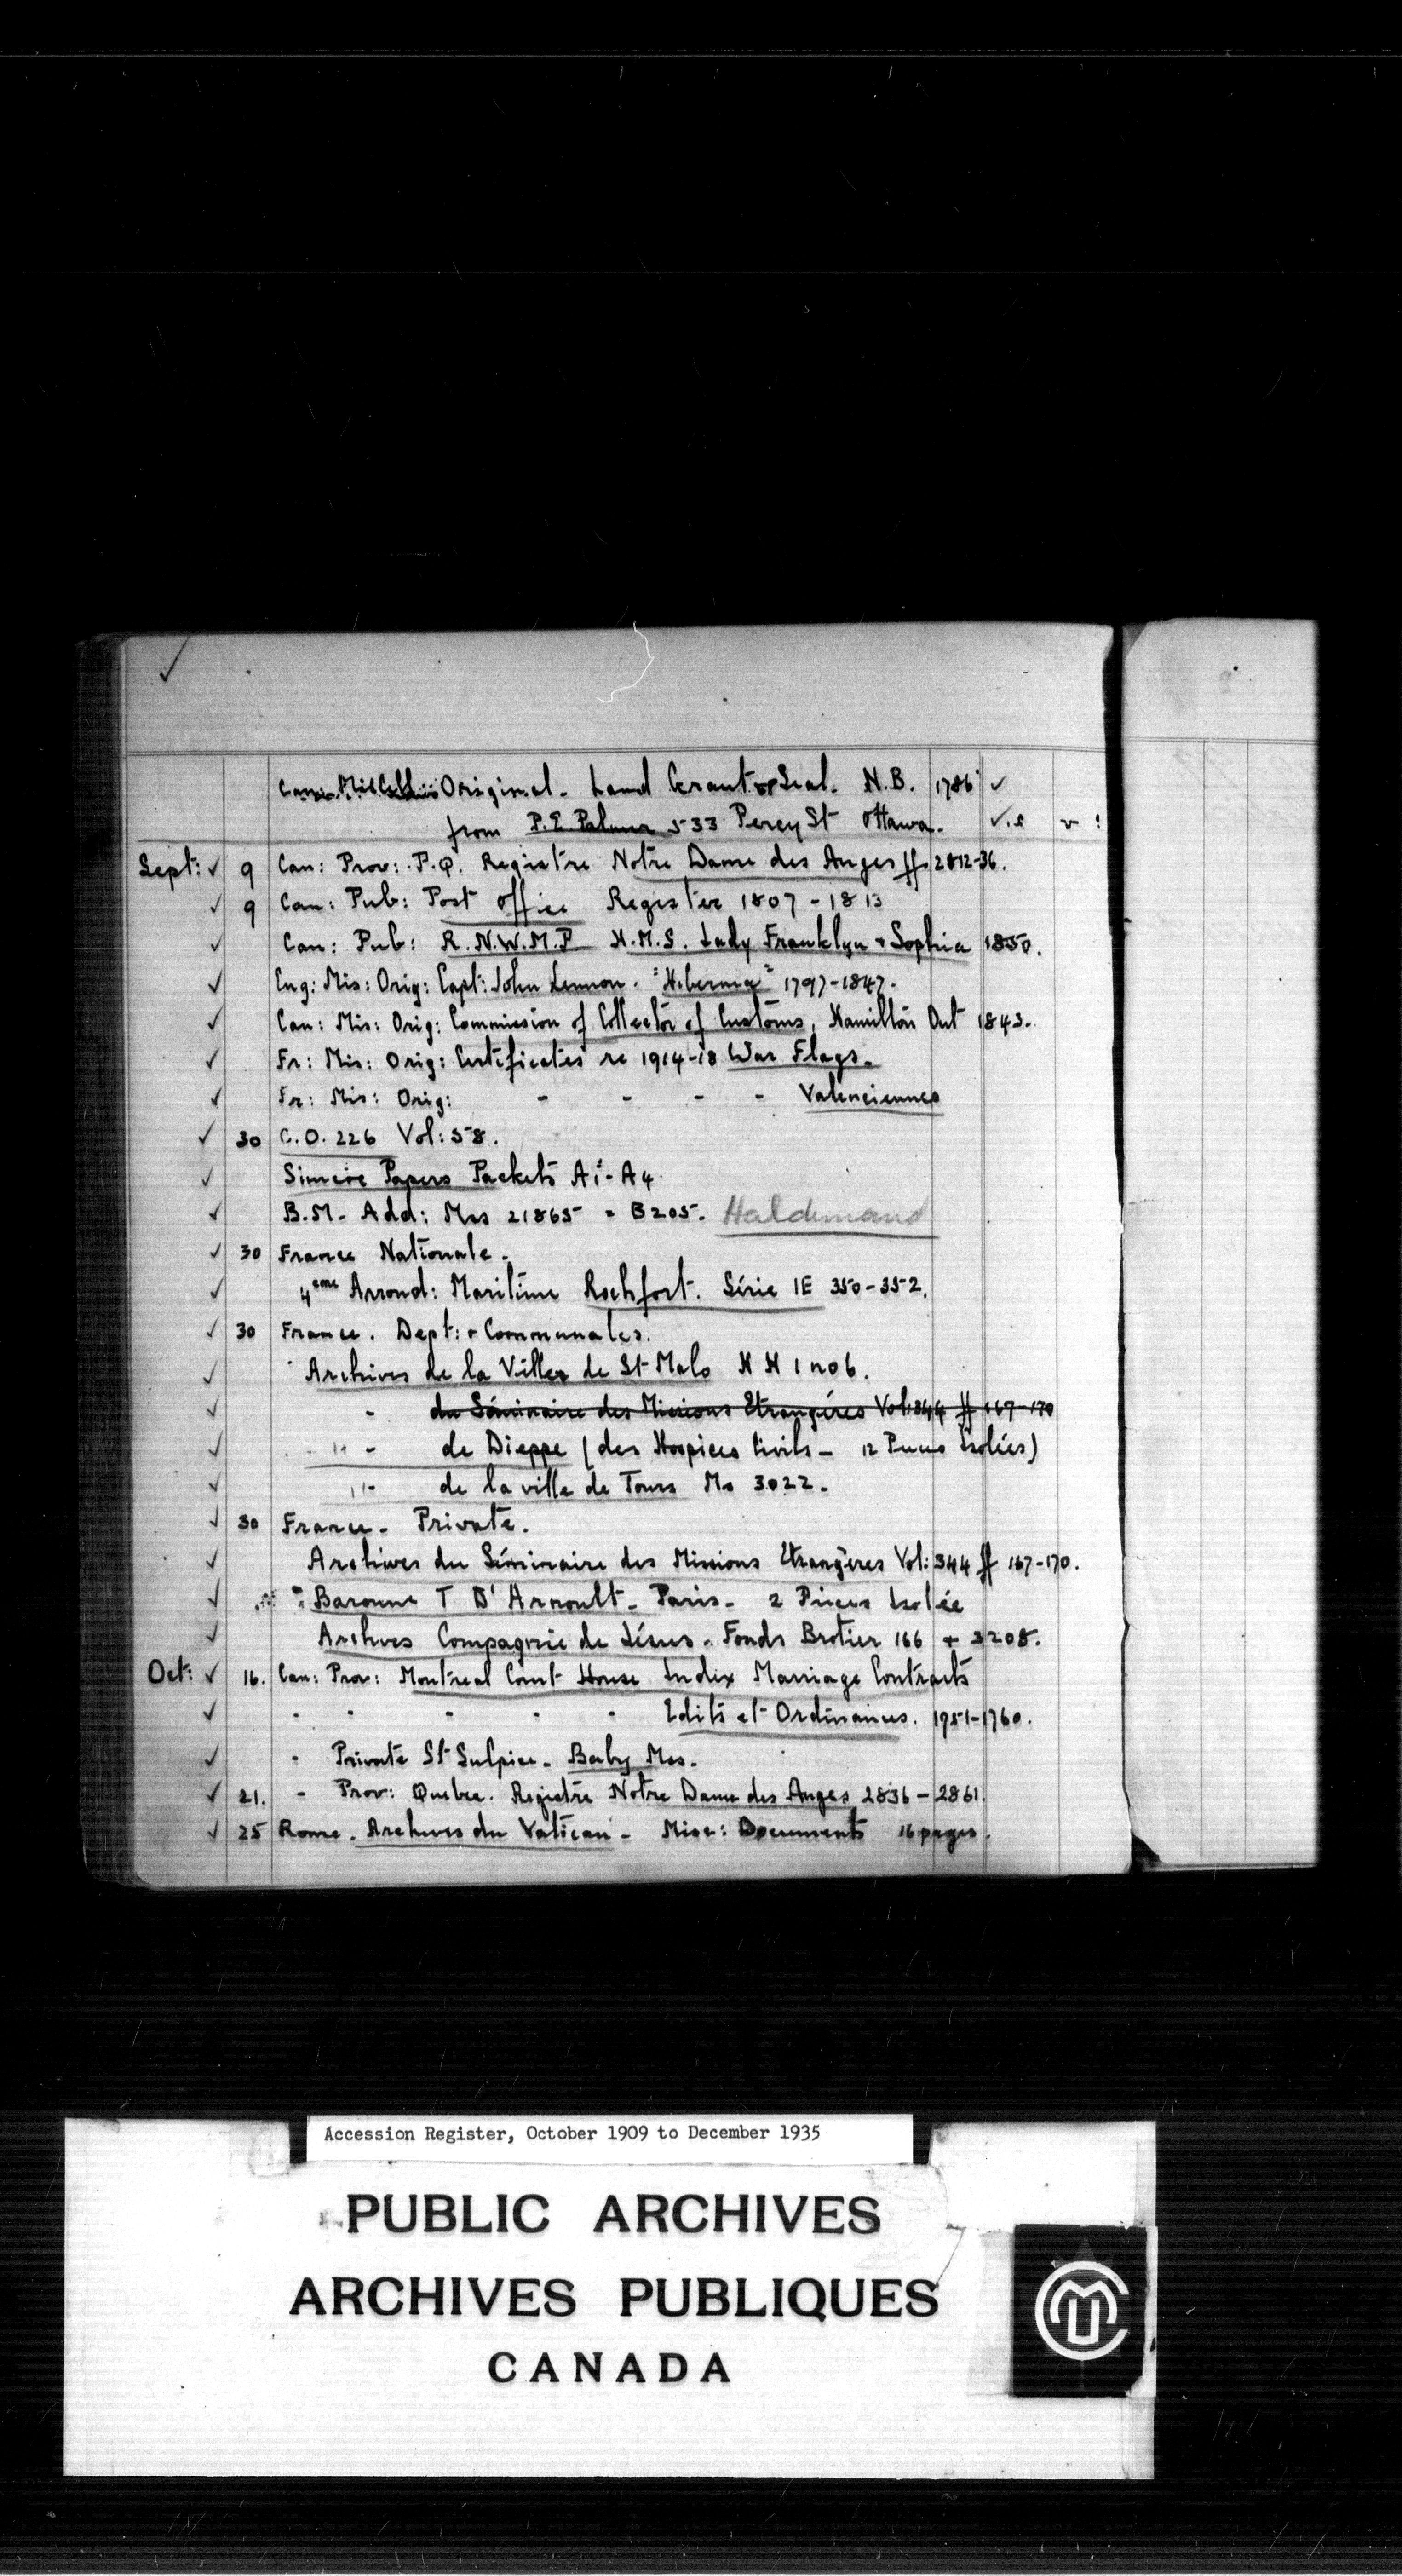 Original - Land Grant & Seal. N.B. 1786 ✓
from P.E. Palmer 533 Percy St Ottawa.
Sept: ✓ 9 Can: Prov: P.Q. Registre Notre Dame des Anges ff. 2812-36.
✓ 9 Can: Pub: Post Office Register 1807-1813
✓ Can: Pub: R.N.W.M.P H.M.S. Lady Franklyn + Sophia 1850.
✓ Eng: Mis: Orig: Capt: John Lennon. "Hibernia" 1797-1847.
✓ Can: Mis: Orig: Commission of Collector of Customs, Hamilton Ont 1843.
✓ Fr: Mis: Orig: Certificates re 1914-18 War Flags.
✓ Fr: Mis: Orig: - - - - Valenciennes
✓ 30 C.O. 226 Vol: 58.
✓ Simcoe Papers Packets A1-A4
✓ B.M. Add: Mss 21865 = B205. Haldimand
✓ 30 France Nationale.
✓ 4eme Arrond: Maritime Rochfort. Série 1E 350-352.
✓ 30 France. Dept: + Communales.
✓ Archives de la Ville de St Malo HH 1 no 6.
✓ - du Séminaire des Missions Etrangéres Vol: 344 ff 167-170
✓ " - de Dieppe (des Hospices Civils - 12 Pieces Isolées)
✓ " - de la ville de Tours Ms 3022.
✓ 30 France - Private.
✓ Archives du Séminaire des Missions Etrangères Vol: 344 ff 167-170.
✓ " Baronne T D'Arnoult - Paris - 2 Pieces Isolée
✓ Archives Compagnie de Jésus. Fonds Brotier 166 + 3208.
Oct: ✓ 16. Can: Prov: Montreal Court House Index Marriage Contracts
✓ - - - - - Edits et Ordinances. 1751-1760.
✓ - Private St Sulpice - Baby Mss.
✓ 21. - Prov: Quebec. Registre Notre Dame des Anges 2836-2861.
✓ 25 Rome. Archives du Vatican - Misc: Documents 16 pages.
Accession Register, October 1909 to December 1935
PUBLIC ARCHIVES
ARCHIVES PUBLIQUES
CANADA